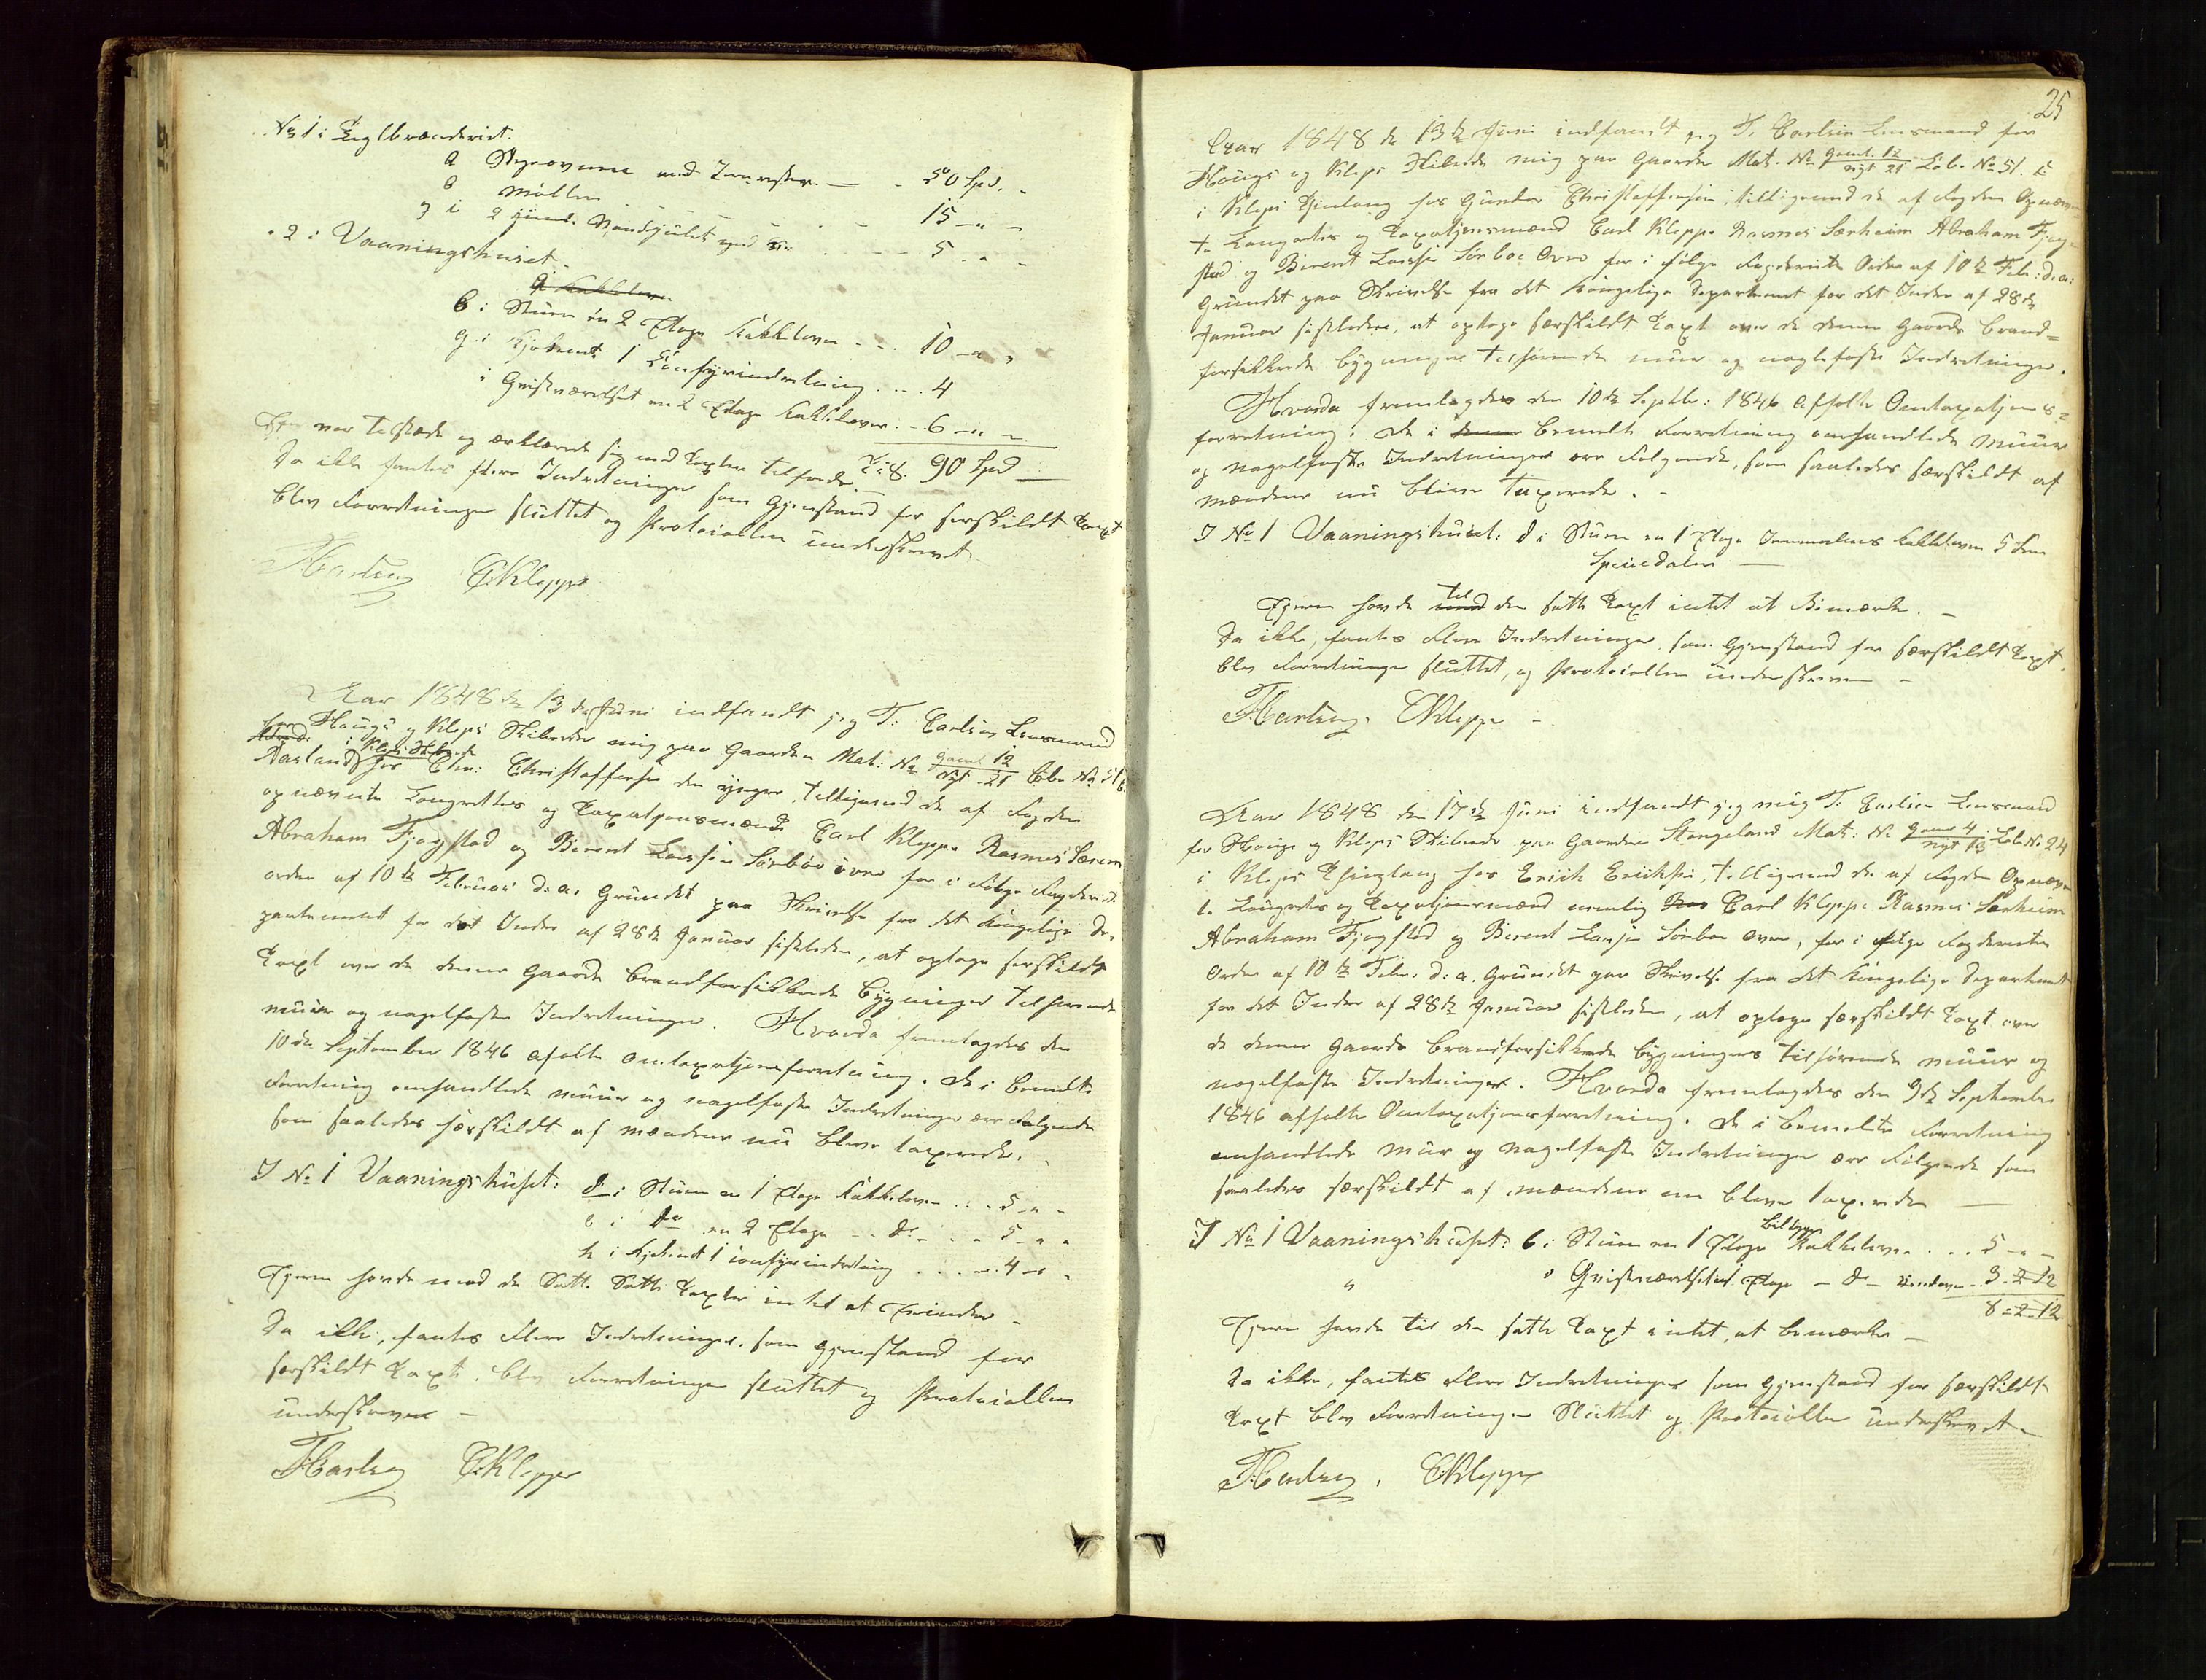 No 1 i Teglbrænderiet.
a Steenovnen med Tømmerhus — 50 Spd. -
b Møllen - - - 15 -"-
g i 2 - - 5 -"-
" 2 i Vaaningshuset.
b i Stuen en 2 Etages Kakkelovn - - 10 -"-
g i Kjøkenet 1 Jernfyrindretning - - 4
i Qvistværelset en 2 Etages Kakkelovn - 6 -"-
Eier var tilstæde og erklærede sig med Taxten tilfreds. 90 Spd —
Da ikke fantes flere Indretninger som Gjenstand for særskildt Taxt
blev Forretningen sluttet og Protocollen underskrevet
TCarlsen CKleppe
Aar 1848 den 13de Juni indfandt jeg T: Carlsen Lensmand
for Haugs og Kleps Skibreder mig paa Gaarden Mat: No gaml 12 / nyt 21 Løbe No 51b
Aarland hos Chr: Christoffersen den yngre, tilligemed de af Fogden
opnævnte Laugrettes og Taxatjonsmænd Carl Kleppe Rasmus Særem
Abraham Fjogstad og Berent Larsen Sørboe övre for i Følge Fogderiets
ordre af 10de Februar d: a: Grundet paa Skrivelse fra det Kongelige De-
partement for det Indre af 28de Januar sistleden, at optage serskildt
Taxt over de denne Gaards brandforsikkrede Bygninger tilhørende
muur og nagelfaste Indretninger. Hvorda fremlagdes den
10de September 1846 afolte omtaxatjonsforretning. De i bemeldte
Forretning omhandlede muur og nagelfaste Indretninger ere Følgende
som saaledes særskildt af mændene nu bleve taxerede.
I No 1 Vaaningshuset: d i Stuen en 1 Etages Kakkelovn - - 5 -"-
e i do en 2 Etages - do - - 5 -"-
h i Kjøkenet 1 Jernfyrindretning - - 4 -"-
Eieren havde mod de Satte Satte Taxter intet at Erindre -
Da ikke, fantes flere Indretninger, som gjenstand for
serskildt Taxt, blev Forretningen sluttet og Protocollen
underskreven -
TCarlsen CKleppe
25
Aar 1848 de 13de Juni indfandt jeg T. Carlsen Lensmand for
Haugs og Kleps Skibrede mig paa Gaarden Mat. No gaml. 12 / nyt 21 Løb. No 51. c
i Kleps Thinglaug hos Gunder Christoffersen, tilligemed de af Fogden Opnævn-
te Laugrettes og Taxatjonsmænd Carl Kleppe Rasmus Særheim Abraham Fjog-
stad og Berent Larsen Sørboe Øvre for i følge Fogderiets Ordre af 10de Feb: d. a:
Grundet paa Skrivelse fra det Kongelige Departement for det Indre af 28de
Januar sistleden, at optage særskildt Taxt over de denne Gaards brand-
forsikkrede bygninger tilhørende muur og naglefaste Indretninger.
Hvorda fremlagdes den 10de Septbr: 1846 afholte Omtaxatjons-
forretning. De i bemelte Forretning omhandlede muur
og nagelfaste Indretninger ere Følgende, som saaledes særskildt af
mændene nu bleve taxerede. -
I No 1 Vaaningshuset: d i Stuen en 1 Etages Kakkelovn 5 Fem
Speciedaler —
Eieren havde til den satte Taxt intet at Bemærke. -
Da ikke, fantes flere Indretninger, som Gjenstand for særskildt Taxt,
blev Forretningen sluttet, og Protocollen underskreven -
TCarlsen. CKleppe -
Aar 1848 den 17de Juni indfandt jeg mig T. Carlsen Lensmand
for Haugs og Kleps Skibrede paa Gaarden Stangeland Mat: No gaml 4 / nyt 13 Løb No 24
i Kleps Thinglaug hos Erick Ericksen, Tilligemed de af Fogden Opnævn
te Laugrettes og Taxatjonsmænd nemlig Carl Kleppe Rasmus Særheim
Abraham Fjogstad og Berent Larsen Sørboe Øvre, for i følge Fogderiets
Ordre af 10de Febr. d: a. Grundet paa Skrivelse fra det Kongelige Departement
for det Indre af 28de Januar sistleden, at optage særskildt Taxt over
de denne Gaards brandforsikkrede bygninger tilhørende muur og
nagelfaste Indretninger. Hvorda fremlagdes den 9de September
1846 afholte Omtaxatjonsforretning. De i bemelte Forretning
omhandlede mur og nagelfaste Indretninger ere Følgende som
saaledes særskildt af mændene nu bleve taxerede —
I No 1 Vaaningshuset: b i Stuen en 1 Etages Kakkelovn - - 5 -"-
" " Qvistværelset 1 Etages - do - 3-2-12
8-2-12
Eieren havde til den satte Taxt intet, at bemærke -
Da ikke, fantes flere Indretninger som Gjenstand for særskildt
Taxt blev Forretningen Sluttet og Protocollen underskrevet -
TCarlsen. CKleppe